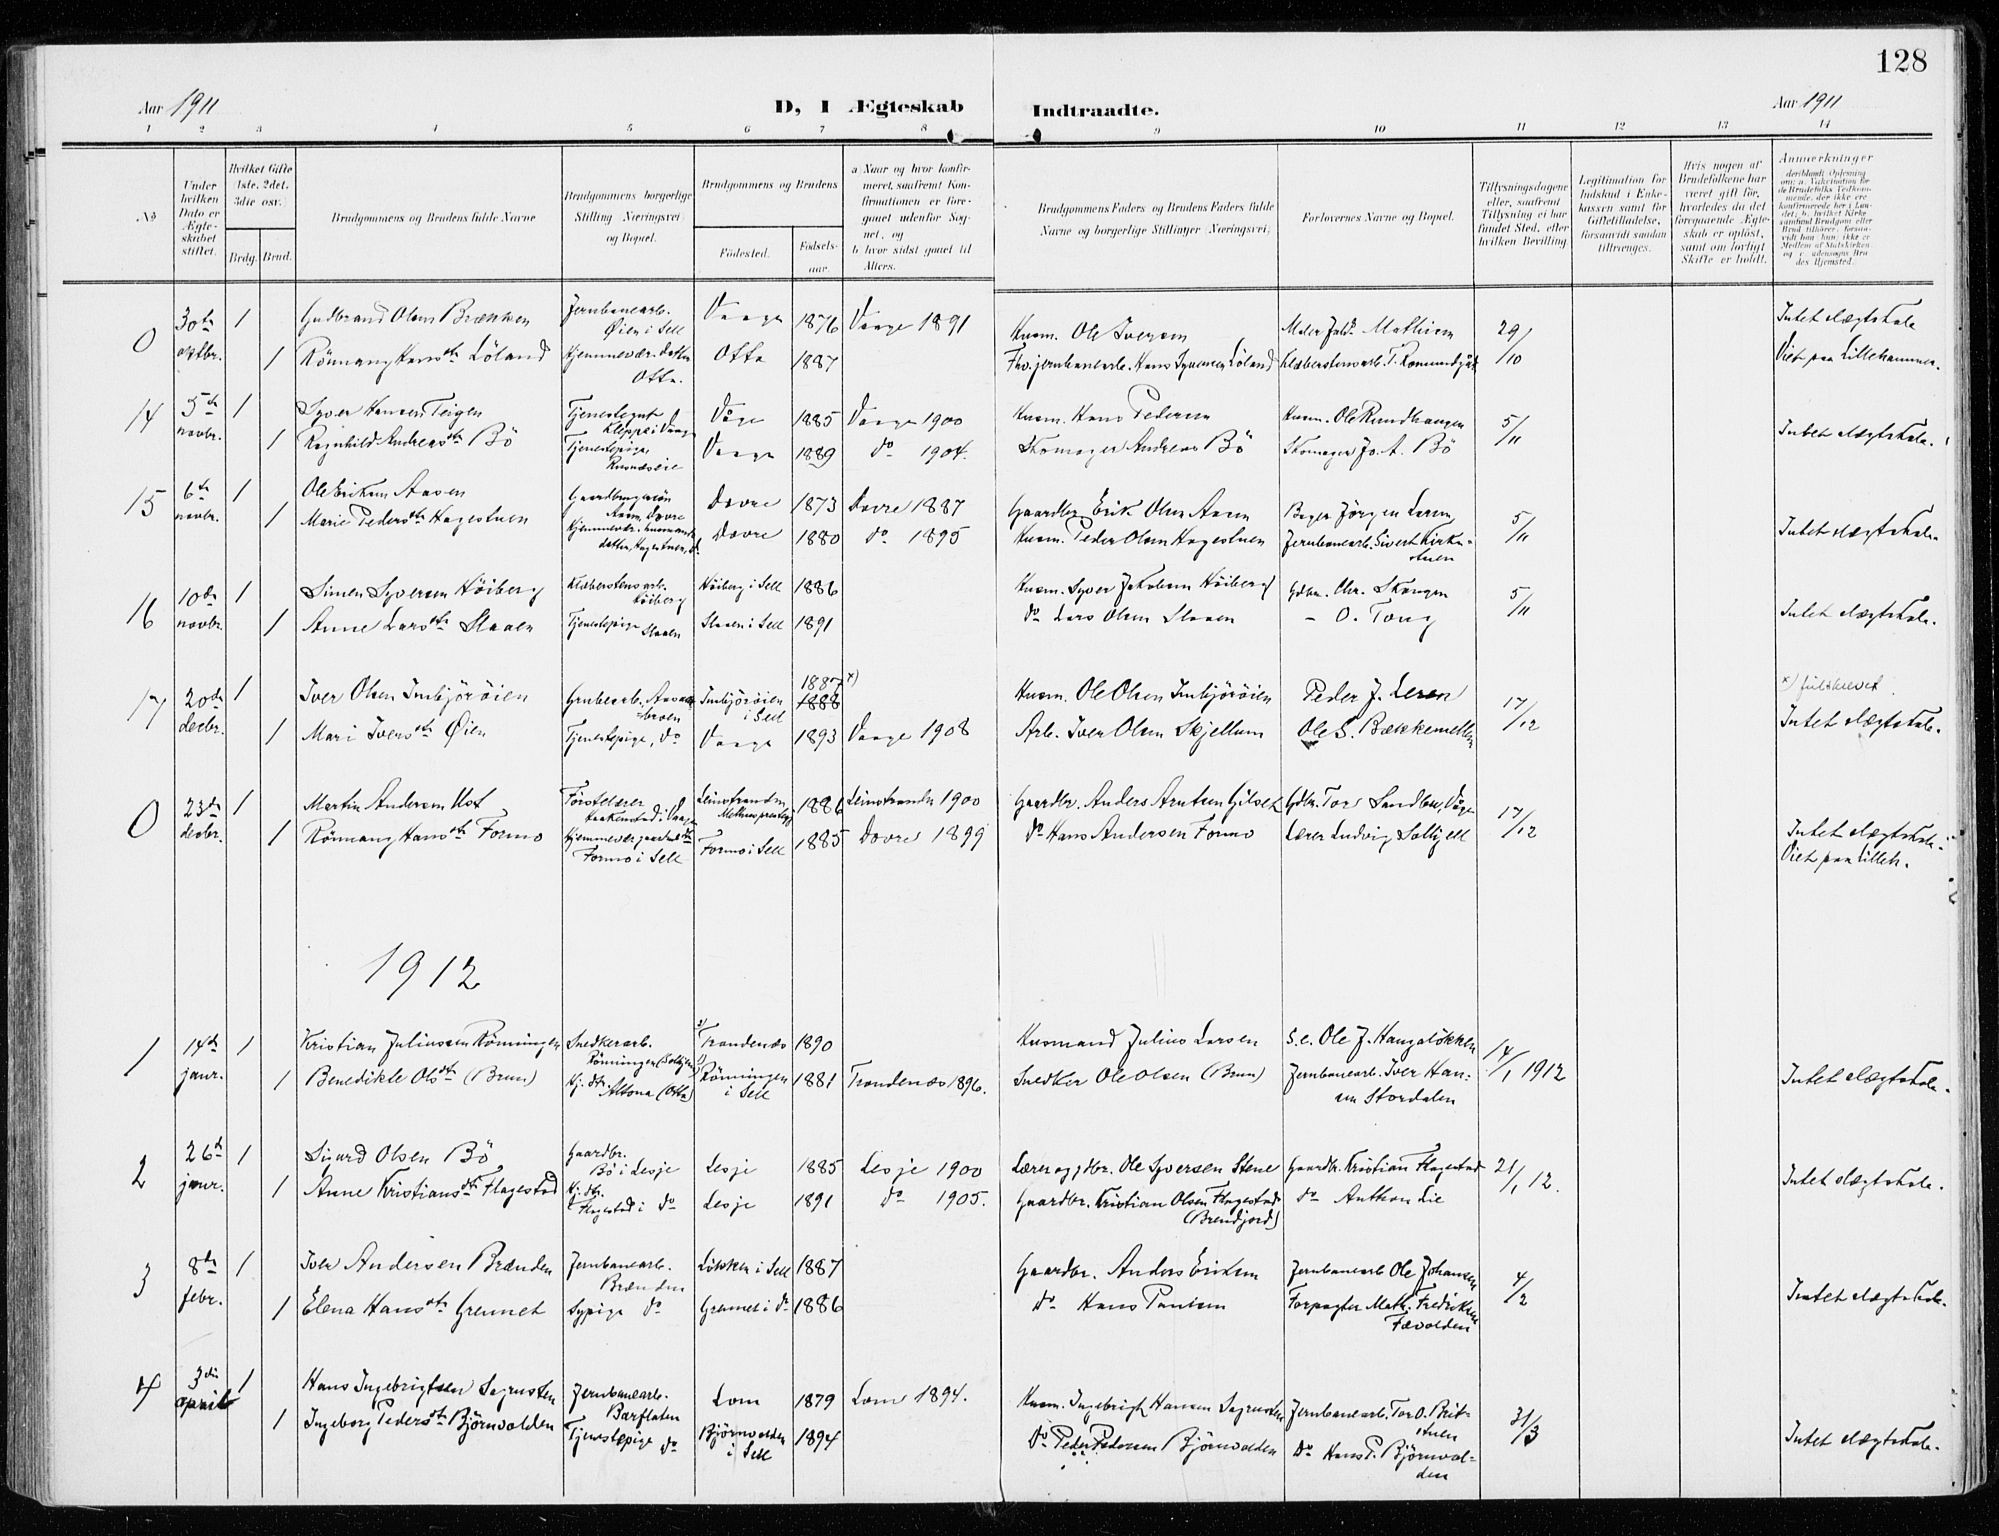 128
Aar 1911
D, I Ægteskab
Indtraadte.
Aar 1911
1 2 3 4 5 6 7 8 9 10 11 12 13 14
No
Under hvilken Dato er Ægteskabet stiftet.
Hvilket Gifte 1ste. 2det. 3die osv.
Brdg. Brud.
Brudgommens og Brudens fulde Navne
Brudgommens borgerlige Stilling Næringsvei og Bopæl.
Brudgommens og Brudens
Fødested.
Fødsels-aar.
a Naar og hvor konfirmeret, saafremt Konfirmationen er foregaaet udenfor Sognet, og
b hvor sidst gaaet til Alters.
Brudgommens Faders og Brudens Faders fulde Navne og borgerlige Stillinger (Næringsvei)
Forlovernes Navne og Bopæl.
Tillysningsdagene eller, saafremt Tillysning ei har fundet Sted, efter hvilken Bevilling
Legitimation for Indskud i Enkekassen samt for Giftetilladelse, forsaavidt saadan tiltrænges.
Hvis nogen af Brudefolkene har været gift før, hvorledes da det foregaaende Ægteskab er opløst, samt om lovligt Skifte er holdt.
Anmerkninger
0 30te oktbr. 1 Gudbrand Olsen Brækken Jernbanearb. Øien i Sell Vaage 1876 Vaage 1891 Husm. Ole Iversen Mathisen 29/10 Intet slægtskab
1 Rönnaug Hansdtr Löland Hjemmevær. datter Otta. Otta 1887 Fhv. jernbanearb. Hans Syversen Löland Klæberstensarb. T. Romundgård Viet paa Lillehammer.
14 5te novbr. 1 Syver Hansen Teigen Tjenestegut Kleppe i Vaage Våge 1885 Vaage 1900 Husm. Hans Pedersen Husm. Ole Rundhaugen 5/11 Intet slægtskab.
1 Ragnhild Andreasdtr Bö Tjenestepige Vaage 1889 do 1904. Skomager Andreas Bö Skomager Jo A. Bö
15 6te novbr. 1 Ole Eriksen Aasen Gaardbrugersøn Aasen, Dovre Dovre 1873 Dovre 1887 Gaardbr. Erik Olsen Aasen Bager Jörgen Loren 5/11 Intet slægtskab.
1 Marie Pedersdtr Hagestuen Hjemmevær. husmands datter, Hagestuen, do Dovre 1880 do 1895 Husm. Peder Olsen Hagestuen Jernbanearb. Sivert Kirkestuen
16 10de novbr. 1 Simen Syversen Höiberg Klæberstensarb. Höiberg Höiberg i Sell 1886 Husm. Syver Jakobsen Höiberg Gdbr. Chr. Skongen 5/11 Intet slægtskab.
1 Anne Larsdtr Slaaen Tjenestepige Slaaen Slaaen i Sell 1891 do Lars Olsen Slaaen – O. Tong
17 20de decbr. 1 Iver Olsen Imbjöröien Grubearb. Imbjöröien i Sell 1887 x) 1888 Husm. Ole Olsen Imbjöröien Peder J. Leren 17/12 x) feilskrevet
1 Mari Iversdtr Öien Tjenestepige, do Vaage 1893 Vaage 1908 Arb. Iver Olsen Skjellum Ole S. Bækkemellem Intet slægtskab.
0 23de decbr. 1 Martin Andersen Ust Förstelærer i Vaage Leinstranden 1886 Leinstranden 1900 Gaardbr. Anders Arntsen Gilset Gdbr. Tor Sandbu, Våge 17/12 Intet slægtskab.
1 Rönnaug Hansdtr Formo Formo i Sell Formo i Sell 1885 Dovre 1899 do Hans Andersen Formo Lærer Ludvig Solhjell Viet paa Lilleh.
1912
1 14de janr. 1 Kristian Juliussen Rönningen Snedkerarb. Rönningen 2) Trondenæs 1890 Husmand Julius Larsen S.e. Ole J. Haugalökken 14/1 1912 Intet slægtskab.
1 Benedikte Olsdtr (Brun) Hj. dtr. Altona (Otta) 1) Rönningen i Sell 1881 Trondenæs 1896. Snedker Ole Olsen (Brun) Jernbanearb. Iver Hansen Stordalen
2 26de janr. 1 Sivard Olsen Bö Gaardbr. Bö i Lesje Lesje 1885 Lesje 1900 Lærer og gdbr. Ole Syversen Stene Gaardbr. Kristian Flagestad 21/1 12. Intet slægtskab.
1 Anne Kristiansdtr Flagestad Hj. dtr. Flagestad i do Lesje 1891 do 1905. Gaardbr. Kristian Olsen Flagestad (Brendjord) do Anthon Lie
3 8de febr. 1 Iver Andersen Brænden Jernbanearb. Brænden Lökken i Sell 1887 Gaardbr. Anders Eriksen Jernbanearb Ole Johansen 4/2 Intet slægtskab.
1 Elena Hansdtr Grennet Sypige do Grennet i do 1886 do Hans Paulsen Forpagter Math. Fredriksen Fævolden
4 3die april 1 Hans Ingebrigtsen Sagrusten Jernbanearb. Barflaten Lom 1879 Lom 1894. Husm. Ingebrigt Hansen Sagrusten Jernbanearb. Tor O. Britstuen 31/3 Intet slægtskab.
1 Ingeborg Pedersdtr Björnvolden Tjenestepige do Björnvolden i Sell 1894 do Peder Pedersen Björnvolden do Hans P. Björnvolden